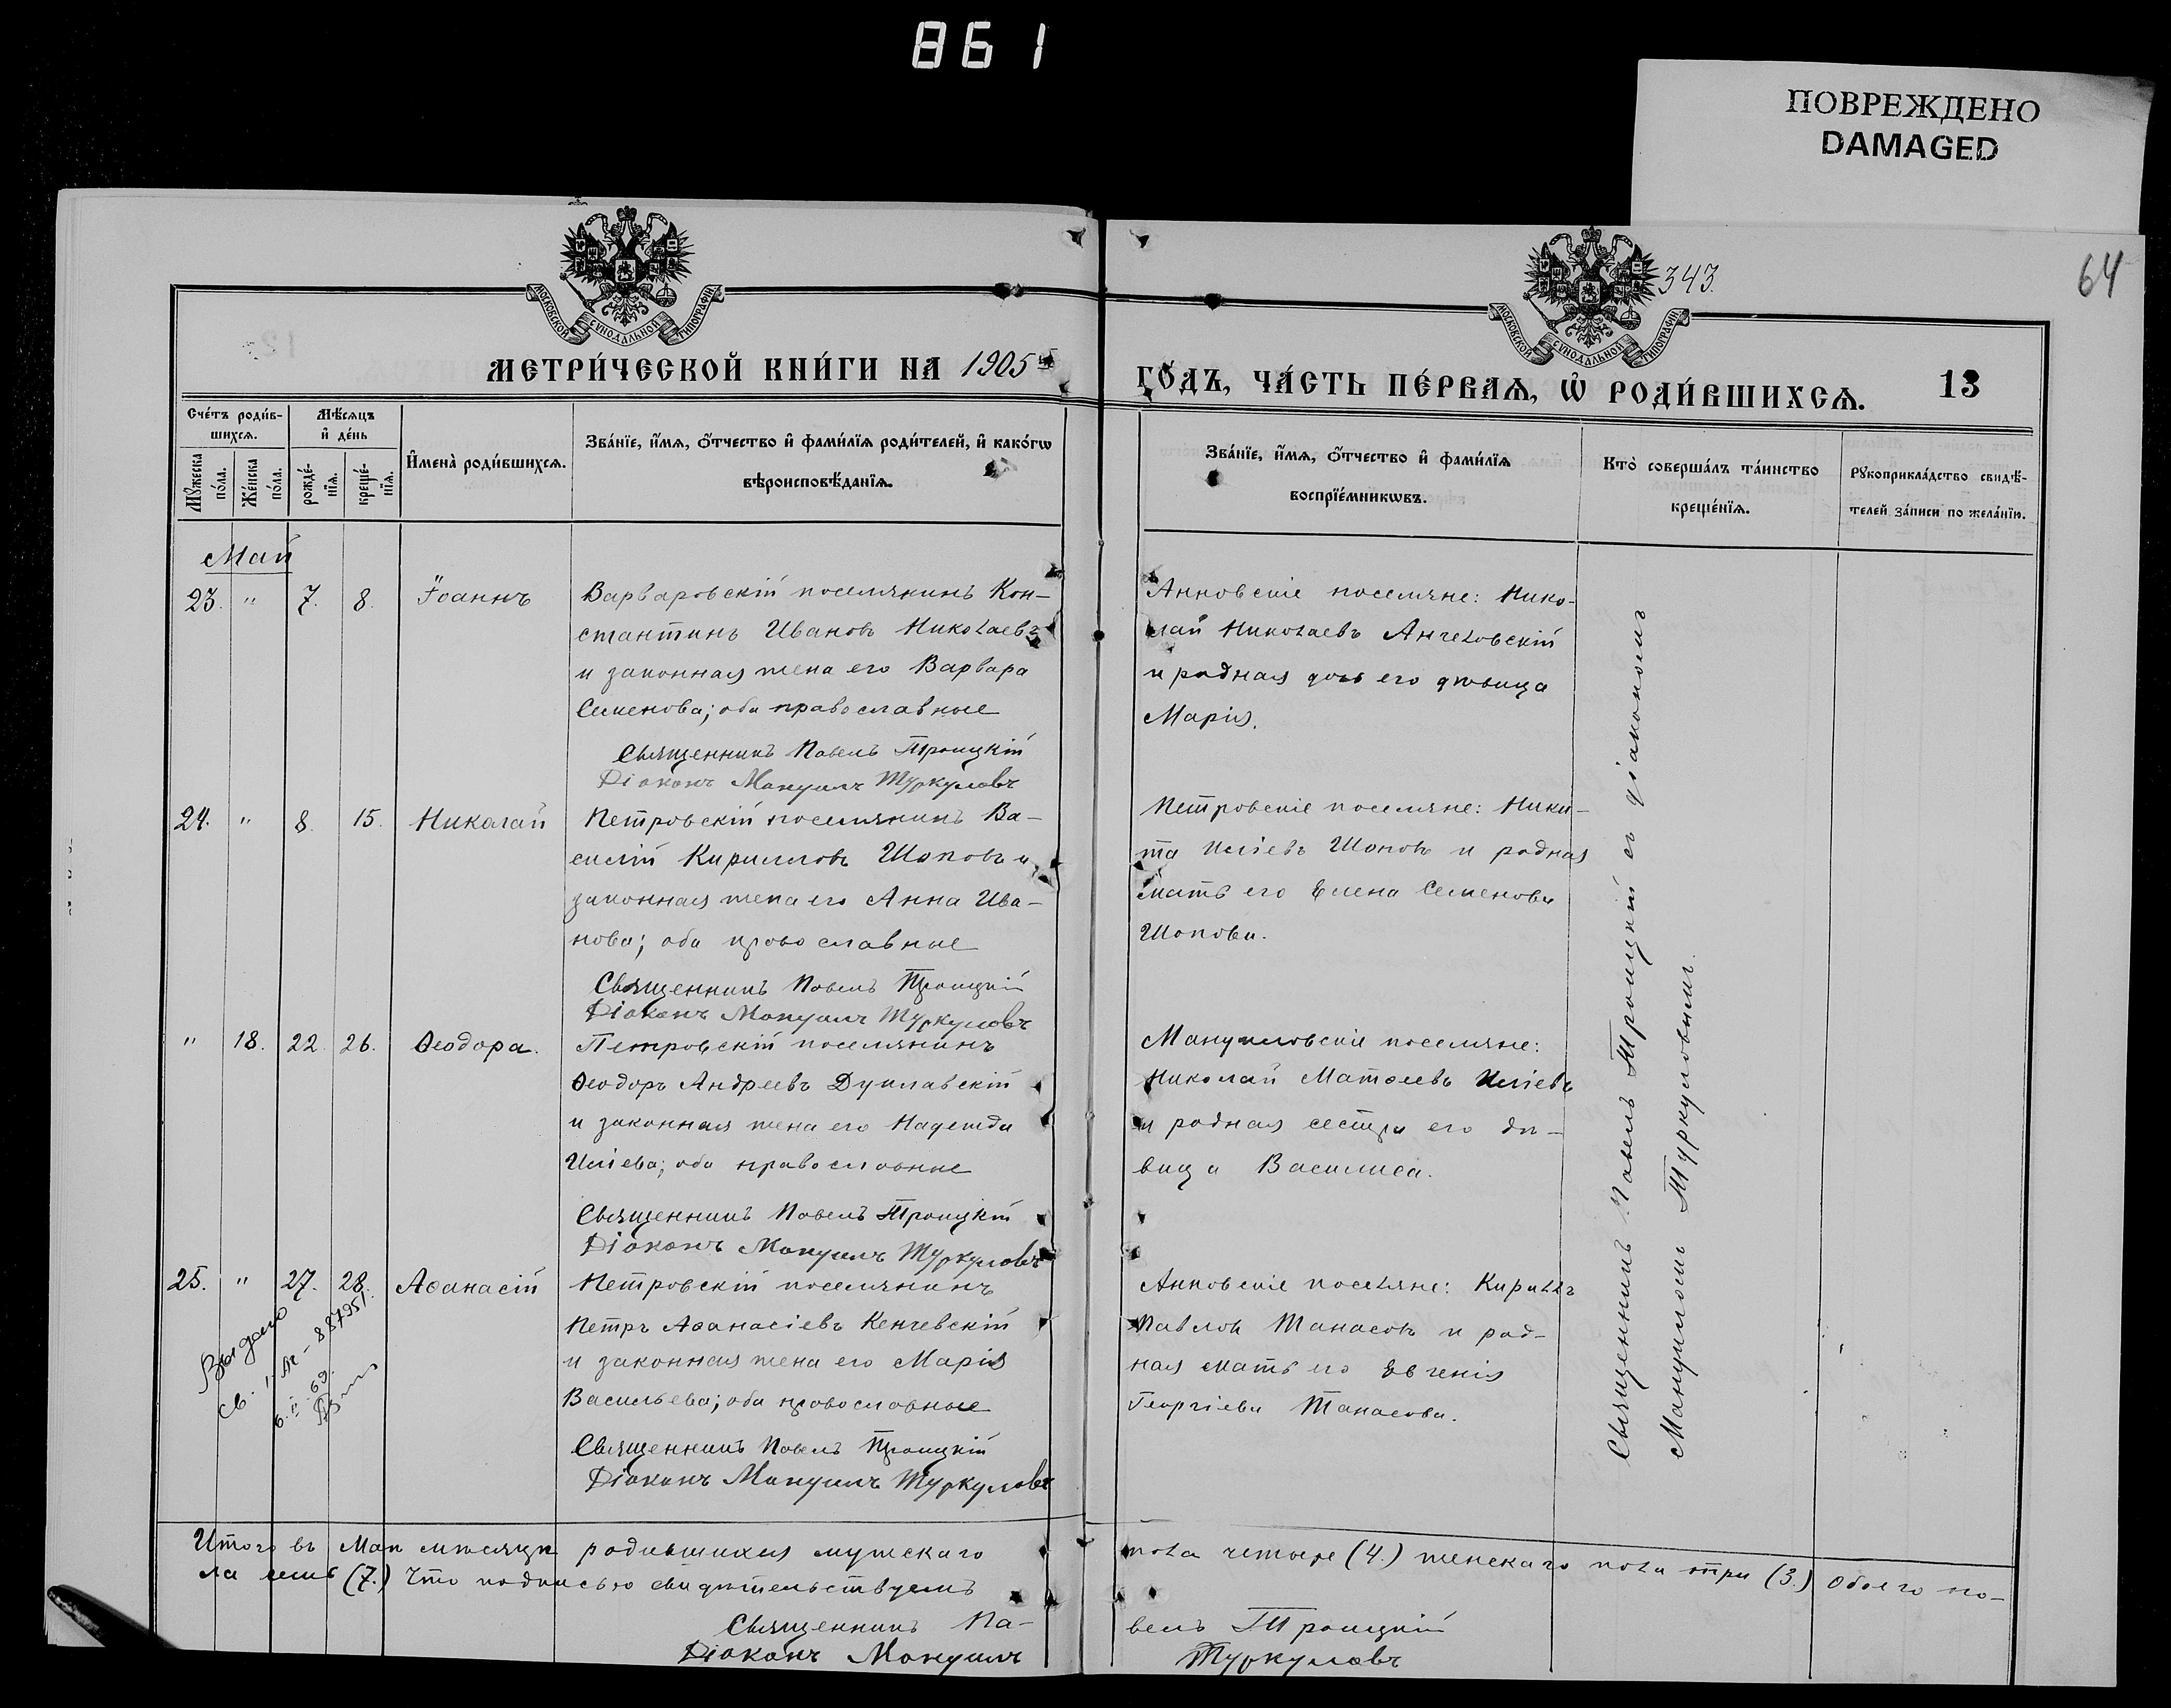 861
ПОВРЕЖДЕНО
DAMAGED
64
343.
МОСКОВСКОЙ СѴНОДАЛЬНОЙ ТИПОГРАФІИ
МОСКОВСКОЙ СѴНОДАЛЬНОЙ ТИПОГРАФІИ
МЕТРИ́ЧЕСКОЙ КНИ́ГИ НА 1905
ГО́ДЪ, ЧА́СТЬ ПЕ́РВАѦ, Ѡ҆ РОДИ́ВШИХСѦ. 13
Сче́тъ роди́в-
шихсѧ.
Мѣ́сѧцъ
и҆ де́нь
Мꙋ́жеска
по́ла.
Же́нска
по́ла.
рожде́-
нїѧ.
креще́-
нїѧ.
И҆мена̀ роди́вшихсѧ.
Зва́нїе, и҆́мѧ, ѻ҆́тчество и҆ фами́лїѧ роди́телей, и҆ како́гѡ
вѣроисповѣ́данїѧ.
Зва́нїе, и҆́мѧ, ѻ҆́тчество и҆ фами́лїѧ
воспрїе́мникѡвъ.
Кто̀ соверша́лъ та́инство
креще́нїѧ.
Рꙋкоприкла́дство свидѣ́-
телей за́писи по жела́нїю.
Май
23. " 7. 8. Іоаннъ
Варваровскій поселянинъ Кон-
стантинъ Ивановъ Николаевъ
и законная жена его Варвара
Семенова; оба православные
Священникъ Павелъ Троицкій
Діаконъ Мануилъ Туркуловъ
Анновскіе поселяне: Нико-
лай Николаевъ Ангеловскій
и родная дочь его дѣвица
Марія.
24. " 8. 15. Николай
Петровскій поселянинъ Ва-
силій Кирилловъ Шоповъ и
законная жена его Анна Ива-
нова; оба православные
Священникъ Павелъ Троицкій
Діаконъ Мануилъ Туркуловъ
Петровскіе поселяне: Ники-
та Иліевъ Шоповъ и родная
мать его Елена Семенова
Шопова.
" 18. 22. 26. Ѳеодора.
Петровскій поселянинъ
Ѳеодоръ Андреевъ Дуплавскій
и законная жена его Надежда
Иліева; оба православные
Священникъ Павелъ Троицкій
Діаконъ Мануилъ Туркуловъ
Мануиловскіе поселяне:
Николай Матѳеевъ Иліевъ
и родная сестра его дѣ-
вица Василиса.
25. " 27. 28. Аѳанасій
Петровскій поселянинъ
Петръ Аѳанасіевъ Кенчевскій
и законная жена его Марія
Васильева; оба православные
Священникъ Павелъ Троицкій
Діаконъ Мануилъ Туркуловъ
Анновскіе поселяне: Кириллъ
Павловъ Танасовъ и род-
ная мать его Евгенія
Георгіева Танасова.
Выдано
св. 887951.
6.II.69.
Священникъ Павелъ Троицкій съ діакономъ
Мануиломъ Туркуловымъ.
Итого въ Маѣ мѣсяцѣ родившихся мужскаго пола четыре (4.) женскаго пола три (3.) обоего по-
ла семь (7.) Что подписью свидѣтельствуемъ
Священникъ Павелъ Троицкій
Діаконъ Мануилъ Туркуловъ